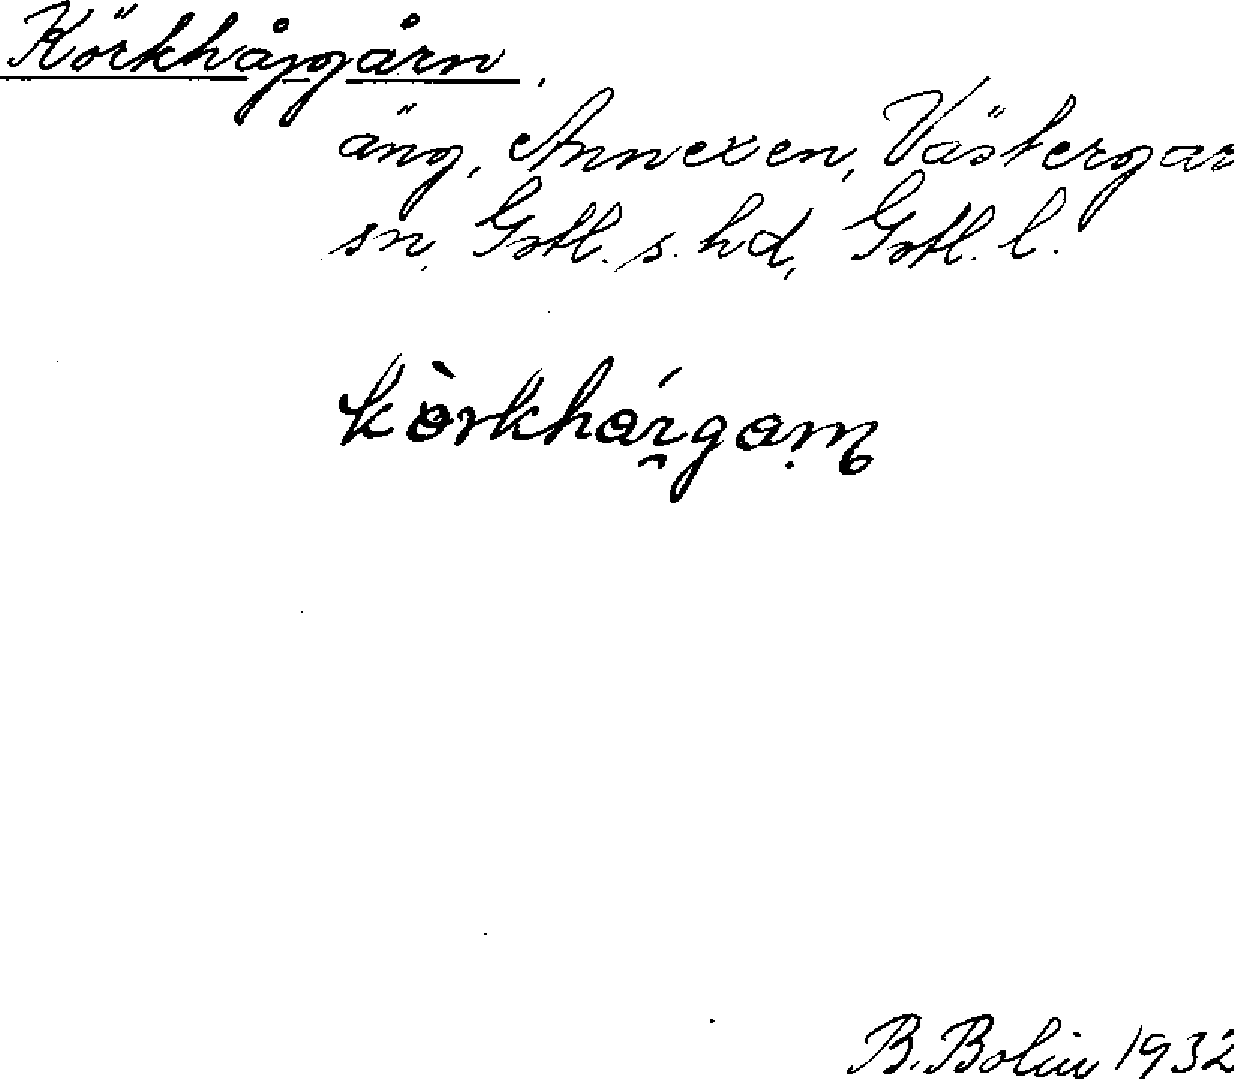 Körkhåjgårn.
äng, Annexen, Västergar
sn, Gotl. s. hd, Gotl. l.
B. Bolin 1932